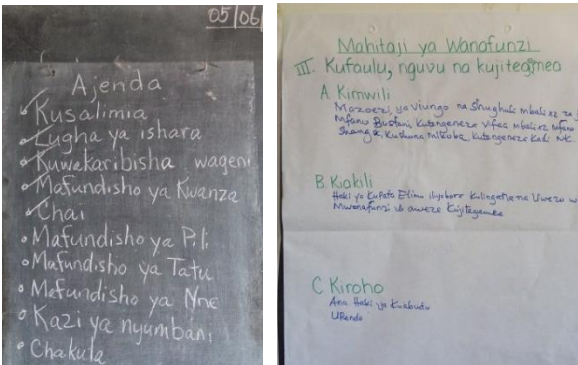 05/06
Ajenda
Kusalimia
Lugha ya ishara
Kuwakaribisha wageni
Mafundisho ya Kwanza
Chai
Mafundisho ya Pili
Mafundisho ya Tatu
Mafundisho ya Nne
Kazi ya nyumbani
Chakula
Mahitaji ya Wanafunzi
III. Kufaulu, nguvu na kujitegemea
A. Kimwili
Mazoezi ya viungo na Shughuli mbali xz za
Mfano Bustani, Kutengeneza vifaa mbali xz mfano
Shanga, Kushona Mikoba, Kutengeneza Kadi NK.
B. Kiakili
Haki ya Kupata Elimu iliyobora Kulingana na Uwezo w
Mwanafunzi ili aweze Kujitegemea
C Kiroho
Ana Haki ya Kuabudu
Upendo